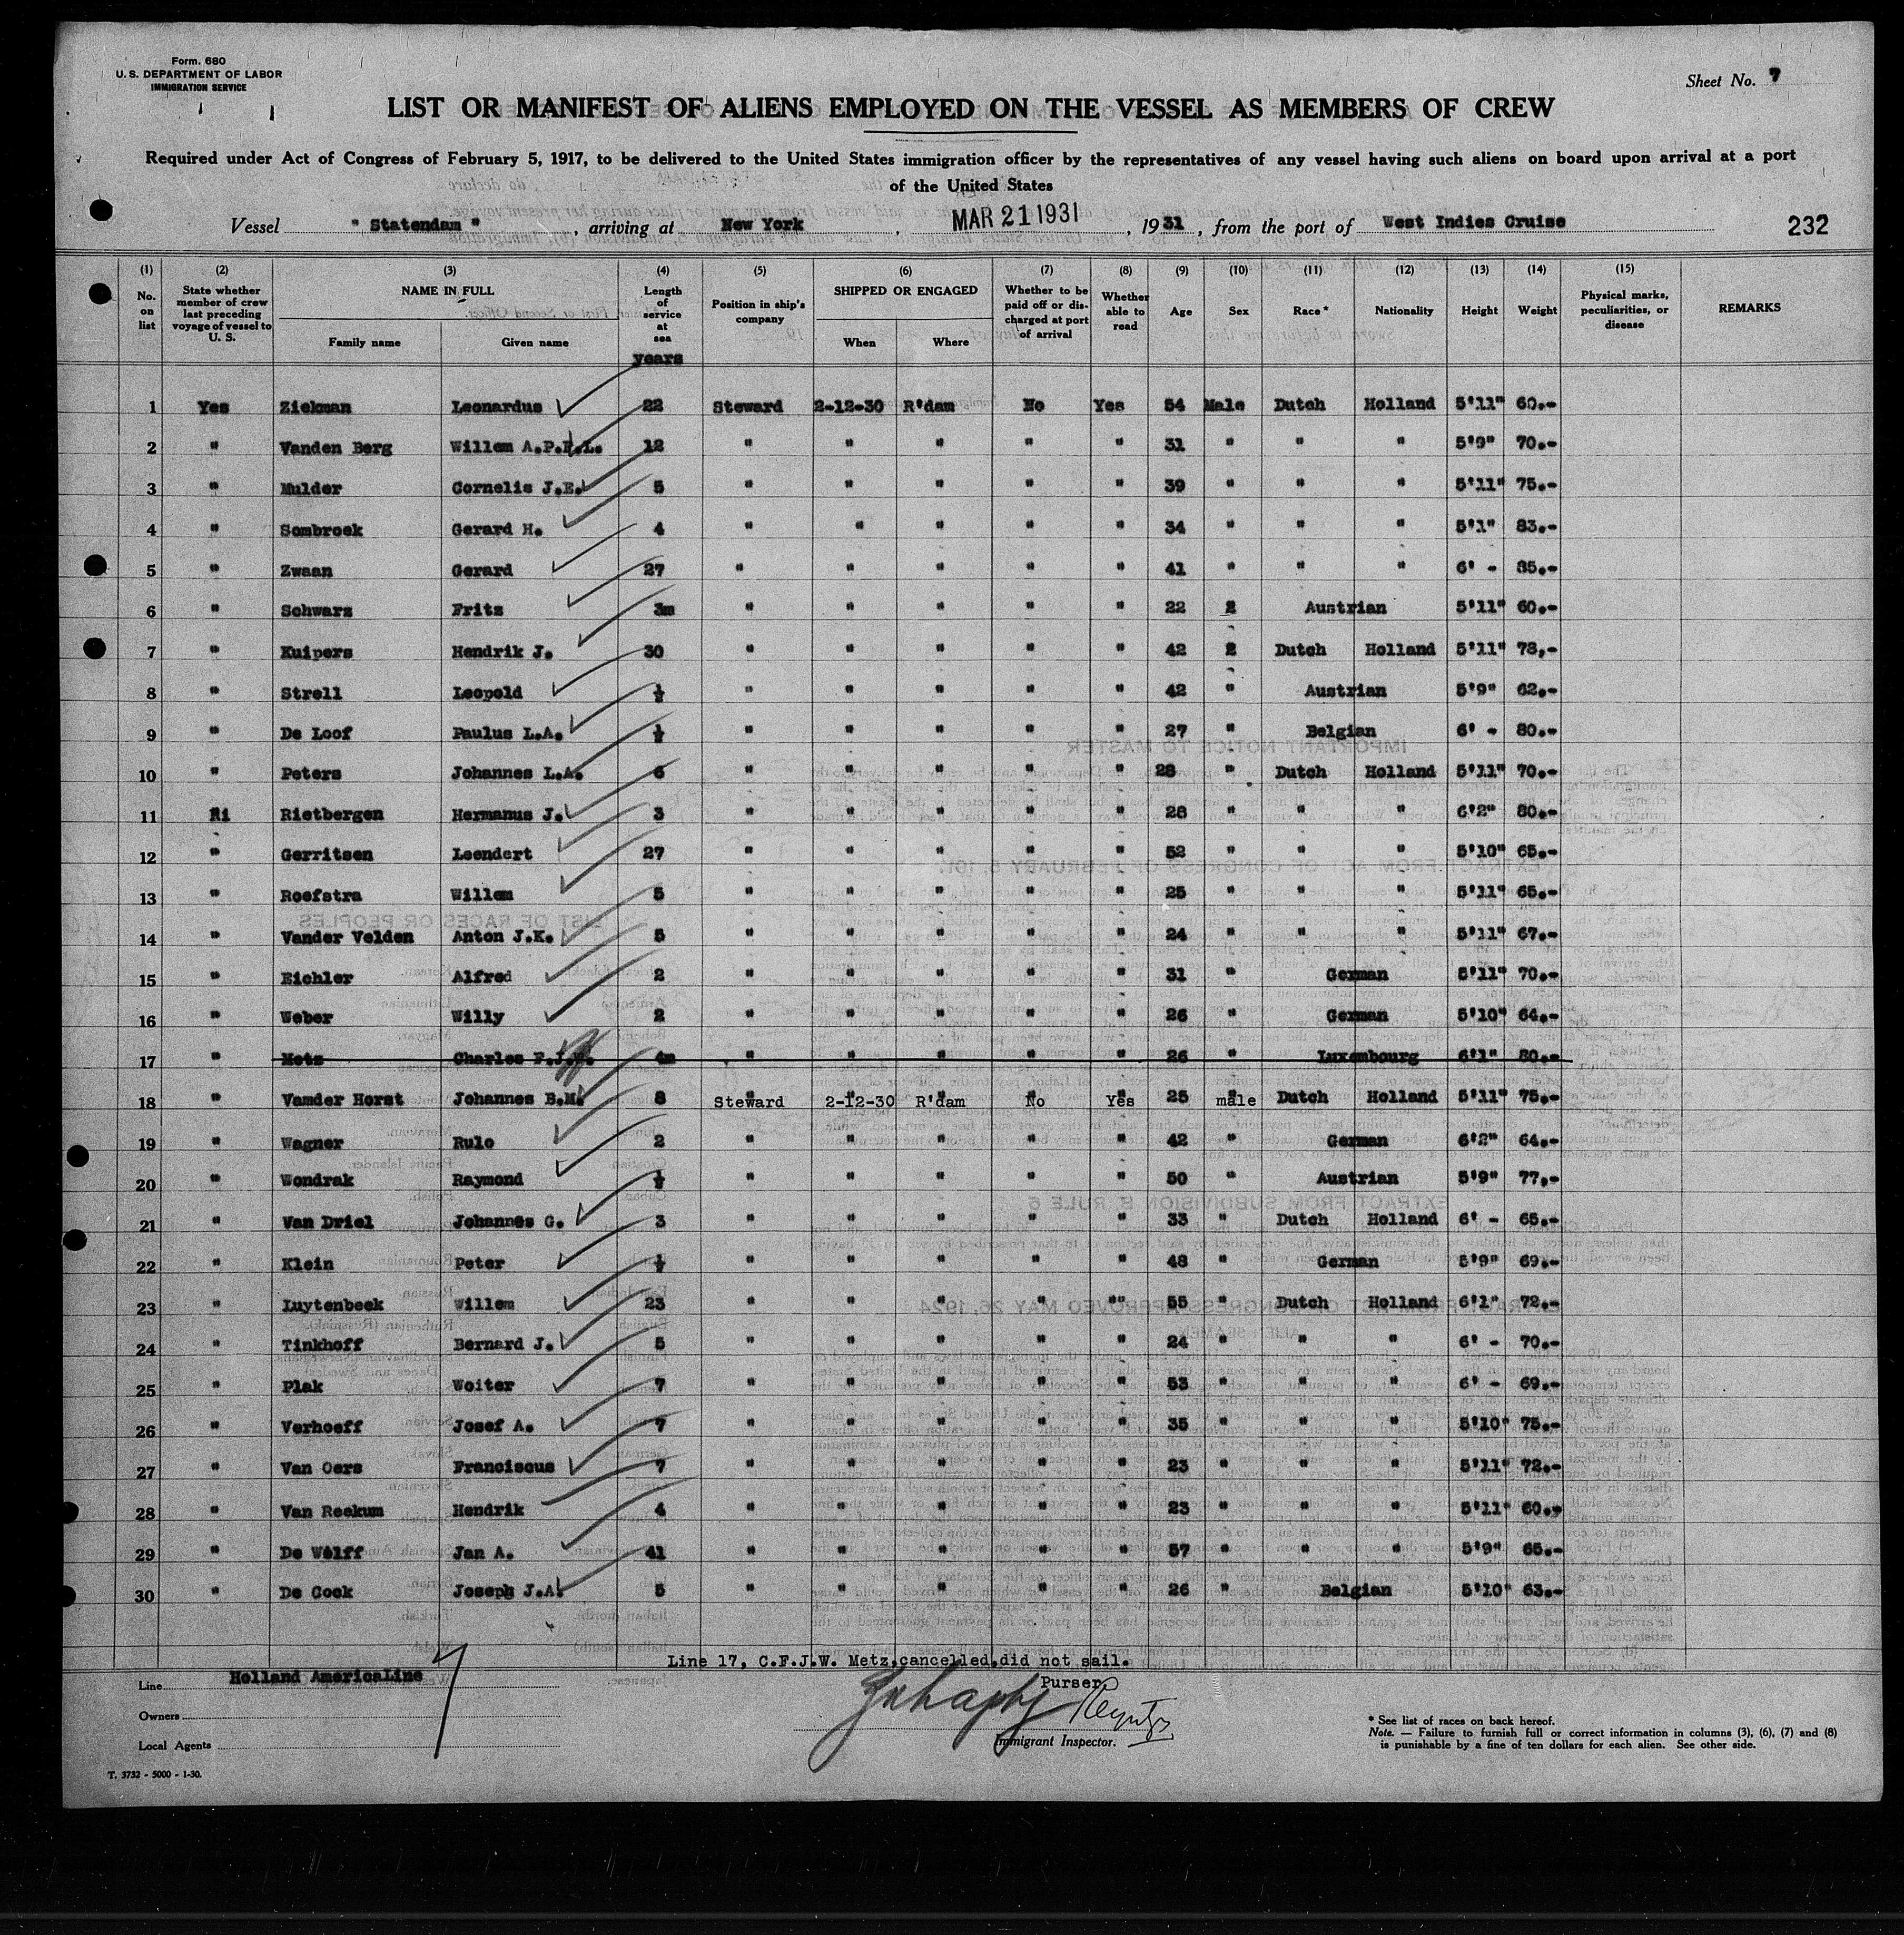 Form. 680
U. S. DEPARTMENT OF LABOR
IMMIGRATION SERVICE
Sheet No. 7
LIST OR MANIFEST OF ALIENS EMPLOYED ON THE VESSEL AS MEMBERS OF CREW
Required under Act of Congress of February 5, 1917, to be delivered to the United States immigration officer by the representatives of any vessel having such aliens on board upon arrival at a port
of the United States
Vessel " Statendam " , arriving at New York , MAR 21 1931 , 1931 , from the port of West Indies Cruise 232
(1) (2) (3) (4) (5) (6) (7) (8) (9) (10) (11) (12) (13) (14) (15)
No. on list State whether member of crew last preceding voyage of vessel to U. S. NAME IN FULL Family name Given name Length of service at sea years Position in ship's company SHIPPED OR ENGAGED When Where Whether to be paid off or discharged at port of arrival Whether able to read Age Sex Race * Nationality Height Weight Physical marks, peculiarities, or disease REMARKS
1 Yes Ziekman Leonardus 22 Steward 2-12-30 R'dam No Yes 54 Male Dutch Holland 5'11" 60.-
2 " Vanden Berg Willem A.P.F.L. 12 " " " " " 31 " " " 5'9" 70.-
3 " Mulder Cornelis J.E. 5 " " " " " 39 " " " 5'11" 75.-
4 " Sombroek Gerard H. 4 " " " " " 34 " " " 5'1" 83.-
5 " Zwaan Gerard 27 " " " " " 41 " " " 6' - 85.-
6 " Schwarz Fritz 3m " " " " " 22 2 Austrian 5'11" 60.-
7 " Kuipers Hendrik J. 30 " " " " " 42 2 Dutch Holland 5'11" 78,-
8 " Strell Leopold ½ " " " " " 42 " Austrian 5'9" 62.-
9 " De Loof Paulus L.A. ½ " " " " " 27 " Belgian 6' - 80.-
10 " Peters Johannes L.A. 6 " " " " " 28 " Dutch Holland 5'11" 70.-
11 Ni Rietbergen Hermanus J. 3 " " " " " 28 " " " 6'2" 80.-
12 " Gerritsen Leendert 27 " " " " " 52 " " " 5'10" 65.-
13 " Roefstra Willem 5 " " " " " 25 " " " 5'11" 65.-
14 " Vander Velden Anton J.K. 5 " " " " " 24 " " " 5'11" 67.-
15 " Eichler Alfred 2 " " " " " 31 " German 5'11" 70.-
16 " Weber Willy 2 " " " " " 26 " German 5'10" 64.-
17 " Metz Charles F.J.W. 4m " " " " " 26 " Luxembourg 6'1" 80.-
18 " Vander Horst Johannes B.M. 8 Steward 2-12-30 R'dam No Yes 25 male Dutch Holland 5'11" 75.-
19 " Wagner Rulo 2 " " " " " 42 " German 6'2" 64.-
20 " Wondrak Raymond ½ " " " " " 50 " Austrian 5'9" 77,-
21 " Van Driel Johannes G. 3 " " " " " 33 " Dutch Holland 6' - 65.-
22 " Klein Peter ½ " " " " " 48 " German 5'9" 69.-
23 " Luytenbeek Willem 23 " " " " "" 55 " Dutch Holland 6'1" 72.-
24 " Tinkhoff Bernard J. 5 " " " " " 24 " " " 6' - 70.-
25 " Plak Wolter 7 " " " " " 53 " " " 6' - 69.-
26 " Verhoeff Josef A. 7 " " " " " 35 " " " 5'10" 75.-
27 " Van Oers Franciscus 7 " " " " " 23 " " " 5'11" 72.-
28 " Van Reekum Hendrik 4 " " " " " 23 " " " 5'11" 60.-
29 " De Wolff Jan A. 41 " " " " " 57 " " " 5'9" 65.-
30 " De Cock Joseph J.A. 5 " " " " " 26 " Belgian 5'10" 63.-
Line 17, C.F.J.W. Metz,cancelled,did not sail.
Purser
Line Holland AmericaLine
Owners
Local Agents
Immigrant Inspector.
* See list of races on back hereof.
Note. — Failure to furnish full or correct information in columns (3), (6), (7) and (8)
is punishable by a fine of ten dollars for each alien. See other side.
T. 3732 - 5000 - 1-30.